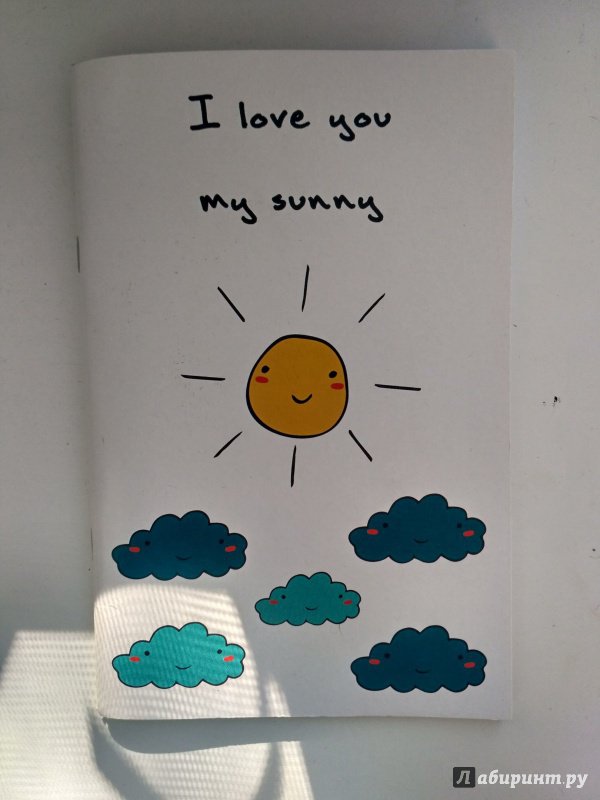 I love you
my sunny
Лабиринт.ру